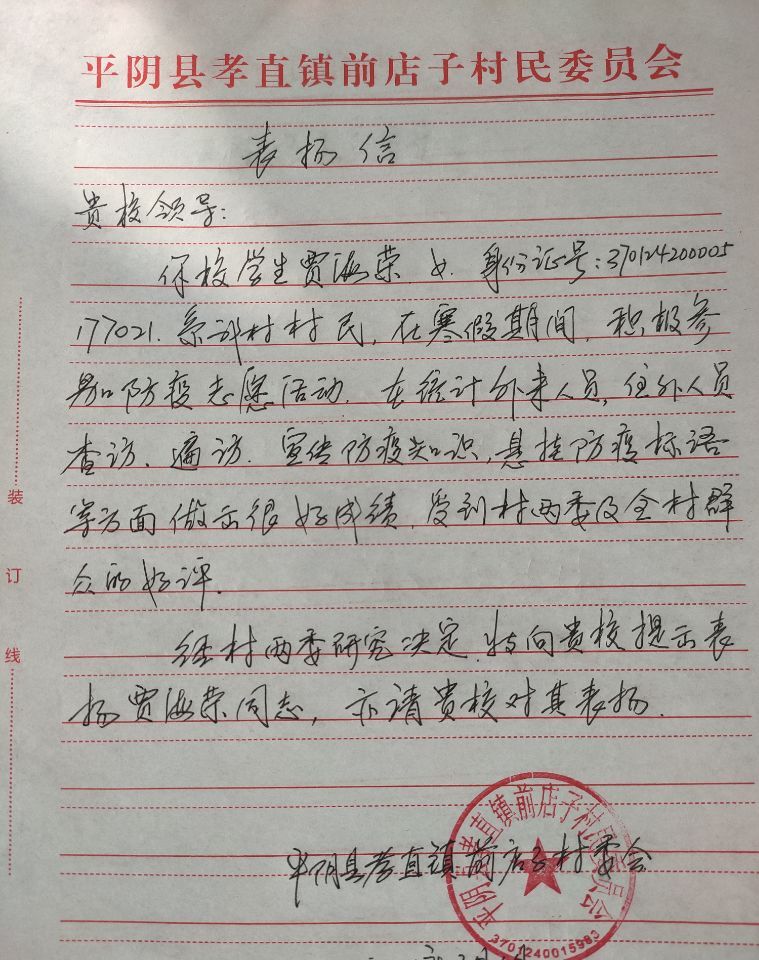 平阴县孝直镇前店子村民委员会
表扬信
贵校领导：
你校学生贾海荣.女.身份证号：370124200005
177021.系我村村民,在寒假期间,积极参
加防疫志愿活动.在统计外来人员,住外人员
查访、遍访.宣传防疫知识,悬挂防疫标语
等方面做出很好成绩,受到村两委及全村群
众的好评.
经村两委研究决定.特向贵校提出表
扬贾海荣同志，亦请贵校对其表扬.
平阴县孝直镇前店子村委会
平阴县孝直镇前店子村民委员会
3701240015983
装
订
线